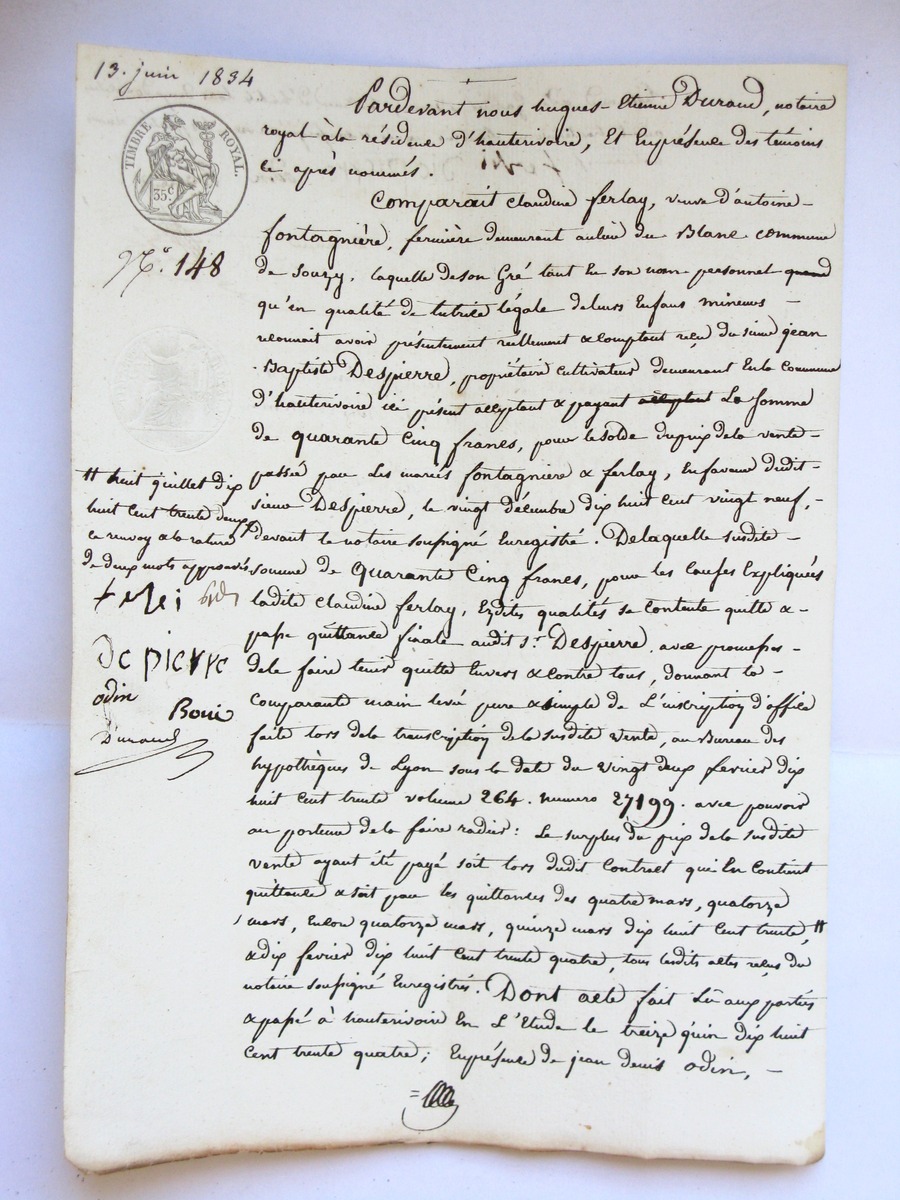 13. juin 1834
TIMBRE ROYAL.
35 c
N.° 148
Pardevant nous hugues-Etienne Durand, notaire
royal à la résidence d'hauterivoire, Et En présence des témoins
ci après nommés.
Comparait Claudine ferlay, veuve d'antoine
fontagnière, fermière demeurant au lieu du Blanc commune
de Souzy, laquelle de son Gré tant En son nom personnel
qu'en qualité de tutrice légale de leurs Enfans mineurs
reconnait avoir présentement réellement & comptant reçu du sieur jean
Baptiste Despierre, propriétaire Cultivateur demeurant En la Commune
d'hauterivoire ici présent acceptant & payant acceptant La somme
de quarante Cinq francs, pour le solde du prix de la vente
passée par Les mariés fontagnière & ferlay, En faveur dudit
sieur Despierre, le vingt décembre dix huit cent vingt neuf,
devant le notaire soussigné Enregistré. De laquelle susdite
somme de Quarante Cinq francs, pour les Causes Expliquées
ladite Claudine ferlay, Esdites qualités se contente quitte &
passe quittance finale audit s.r Despierre, avec promesse
de le faire tenir quitte Envers & contre tous, donnant la
Comparante main levée pure & simple de L'inscription d'office
faite lors de la transcription de la susdite Vente, au Bureau des
hypothèques de Lyon sous la date du vingt deux fevrier dix
huit Cent trente volume 264. numero 27199. avec pouvoir
au porteur de la faire radier: Le surplus du prix de la susdite
vente ayant été payé soit lors dudit Contract qui En Contient
quittance & soit par les quittances des quatre mars, quatorze
mars, Encore quatorze mars, quinze mars dix huit Cent trente, #
& dix fevrier dix huit Cent trente quatre, tous lesdits actes reçus du
notaire soussigné Enregistrés. Dont acte fait Lû aux parties
& passé à hauterivoire En L'Etude le treize juin dix huit
Cent trente quatre; En présence de jean denis odin,
# huit juillet dix
huit Cent trente deux
ce renvoy & la rature
de deux mots approuvés
De pierre
odin
Durand